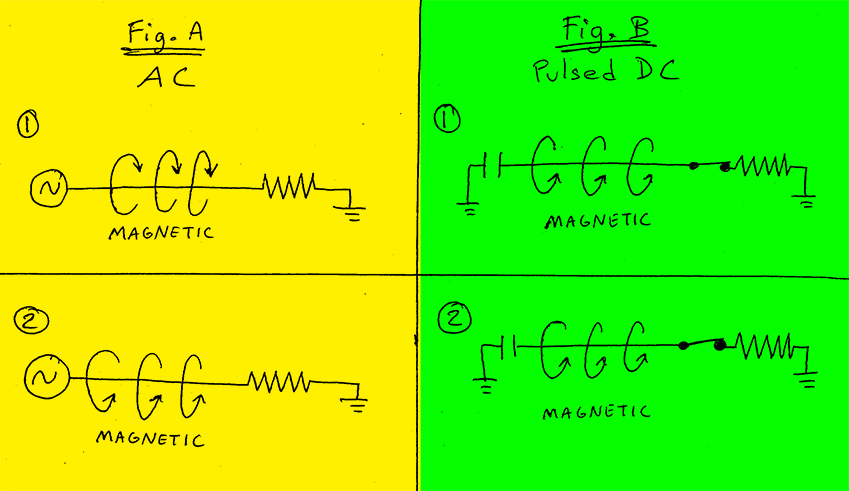 Fig. A
AC
1
MAGNETIC
2
MAGNETIC
Fig. B
Pulsed DC
1
MAGNETIC
2
MAGNETIC